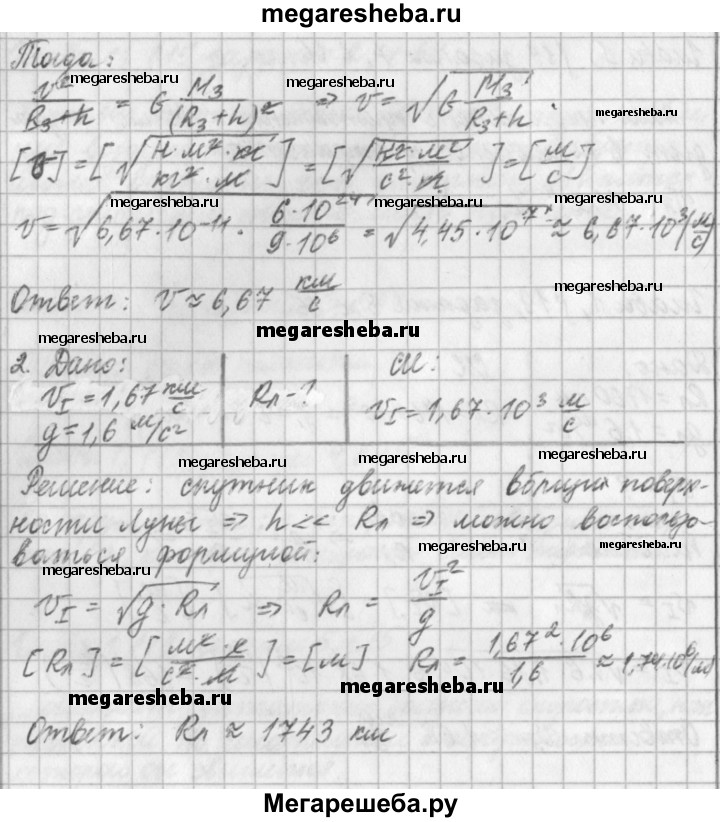 megaresheba.ru
Тогда:
megaresheba.ru megaresheba.ru
v²/(R₃+h) = G M₃/(R₃+h)² ⇒ v = √(G M₃/(R₃+h)).
megaresheba.ru
[v] = [√(Н·м²·кг/(кг²·м))] = [√(кг·м²/(с²·кг))] = [м/с]
megaresheba.ru megaresheba.ru megaresheba.ru
v = √(6,67·10⁻¹¹ · 6·10²⁴/(9·10⁶)) = √(4,45·10⁷) ≈ 6,67·10³ (м/с)
megaresheba.ru
Ответ: v ≈ 6,67 км/с
megaresheba.ru
megaresheba.ru
2. Дано: СИ:
v_I = 1,67 км/с Rл - ? v_I = 1,67·10³ м/с
g = 1,6 м/с²
megaresheba.ru megaresheba.ru megaresheba.ru
Решение: спутник движется вблизи поверх-
ности Луны ⇒ h << Rл ⇒ можно воспользо-
megaresheba.ru megaresheba.ru
ваться формулой:
megaresheba.ru
v_I = √(g · Rл) ⇒ Rл = v_I²/g
[Rл] = [м²·с²/(с²·м)] = [м] Rл = 1,67²·10⁶/1,6 ≈ 1,74·10⁶ (м)
megaresheba.ru megaresheba.ru
Ответ: Rл ≈ 1743 км
Мегарешеба.ру